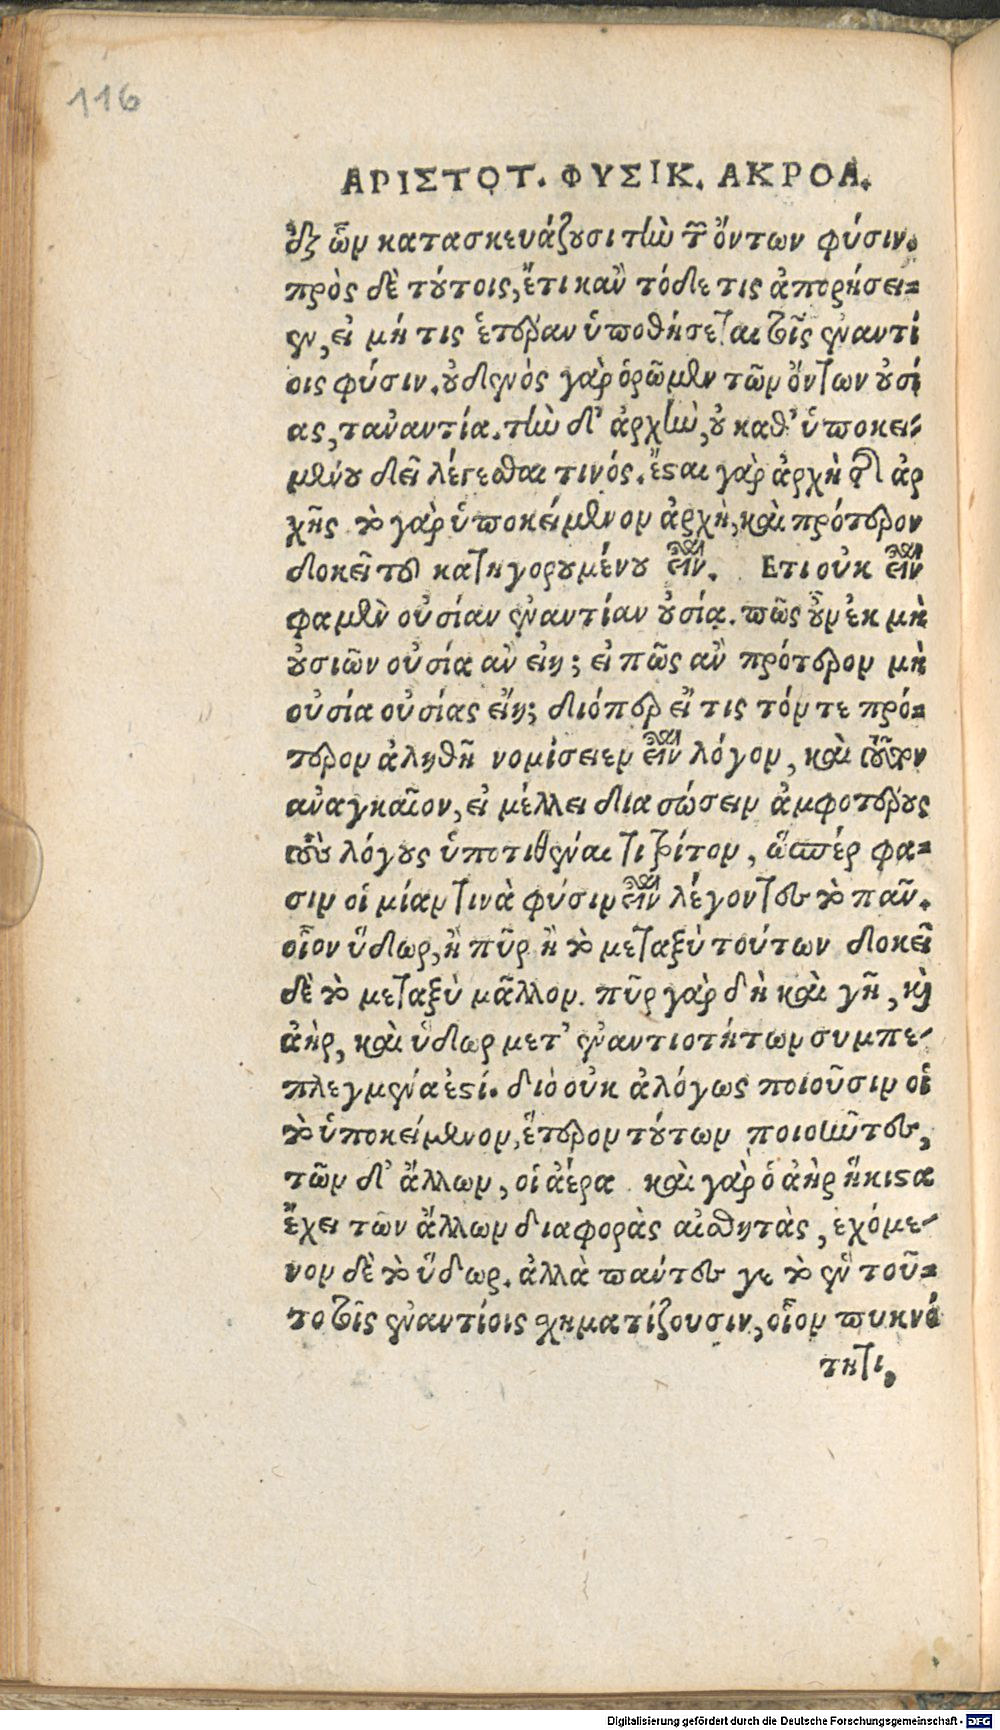 116
ΑΡΙΣΤΟΤ. ΦΥΣΙΚ. ΑΚΡΟΑ.
ἐξ ὧν κατασκευάζουσι τὴν τῶν ὄντων φύσιν.
πρὸς δὲ τούτοις, ἔτι κἂν τόδε τις ἀπορήσει=
εν, εἰ μή τις ἑτέραν ὑποθήσεται τοῖς ἐναντί
οις φύσιν. οὐδενὸς γὰρ ὁρῶμεν τῶν ὄντων οὐσί
ας, τἀναντία. τὴν δ' ἀρχὴν, οὐ καθ' ὑποκει-
μένου δεῖ λέγεσθαι τινός. ἔσται γὰρ ἀρχὴ τῆς ἀρ
χῆς τὸ γὰρ ὑποκείμενον ἀρχὴ, καὶ πρότερον
δοκεῖ τοῦ κατηγορουμένου εἶναι. Ετι οὐκ εἶναι
φαμὲν οὐσίαν ἐναντίαν οὐσίᾳ. πῶς οὖν ἐκ μὴ
οὐσιῶν οὐσία ἂν εἴη; εἰ πῶς ἂν πρότερον μὴ
οὐσία οὐσίας εἴη; διόπερ εἴ τις τόν τε πρό=
τερον ἀληθῆ νομίσειεν εἶναι λόγον, καὶ τοῦτον
ἀναγκαῖον, εἰ μέλλει διασώσειν ἀμφοτέρους
τοὺς λόγους ὑποτιθέναι τι τρίτον, ὥσπέρ φα=
σιν οἱ μίαν τινὰ φύσιν εἶναι λέγοντες τὸ πᾶν.
οἷον ὕδωρ, ἢ πῦρ ἢ τὸ μεταξὺ τούτων δοκεῖ
δὲ τὸ μεταξὺ μᾶλλον. πῦρ γὰρ δὴ καὶ γῆ, καὶ
ἀὴρ, καὶ ὕδωρ μετ' ἐναντιοτήτων συμπε-
πλεγμένα ἐστί. διὸ οὐκ ἀλόγως ποιοῦσιν οἱ
τὸ ὑποκείμενον, ἕτερον τούτων ποιοῦντες,
τῶν δ' ἄλλων, οἱ ἀέρα καὶ γὰρ ὁ ἀὴρ ἥκιστα
ἔχει τῶν ἄλλων διαφορὰς αἰσθητὰς, ἐχόμε-
νον δὲ τὸ ὕδωρ. ἀλλὰ πάντες γε τὸ ἓν τοῦ=
το τοῖς ἐναντίοις σχηματίζουσιν, οἷον πυκνό
τητι,
Digitalisierung gefördert durch die Deutsche Forschungsgemeinschaft - DFG